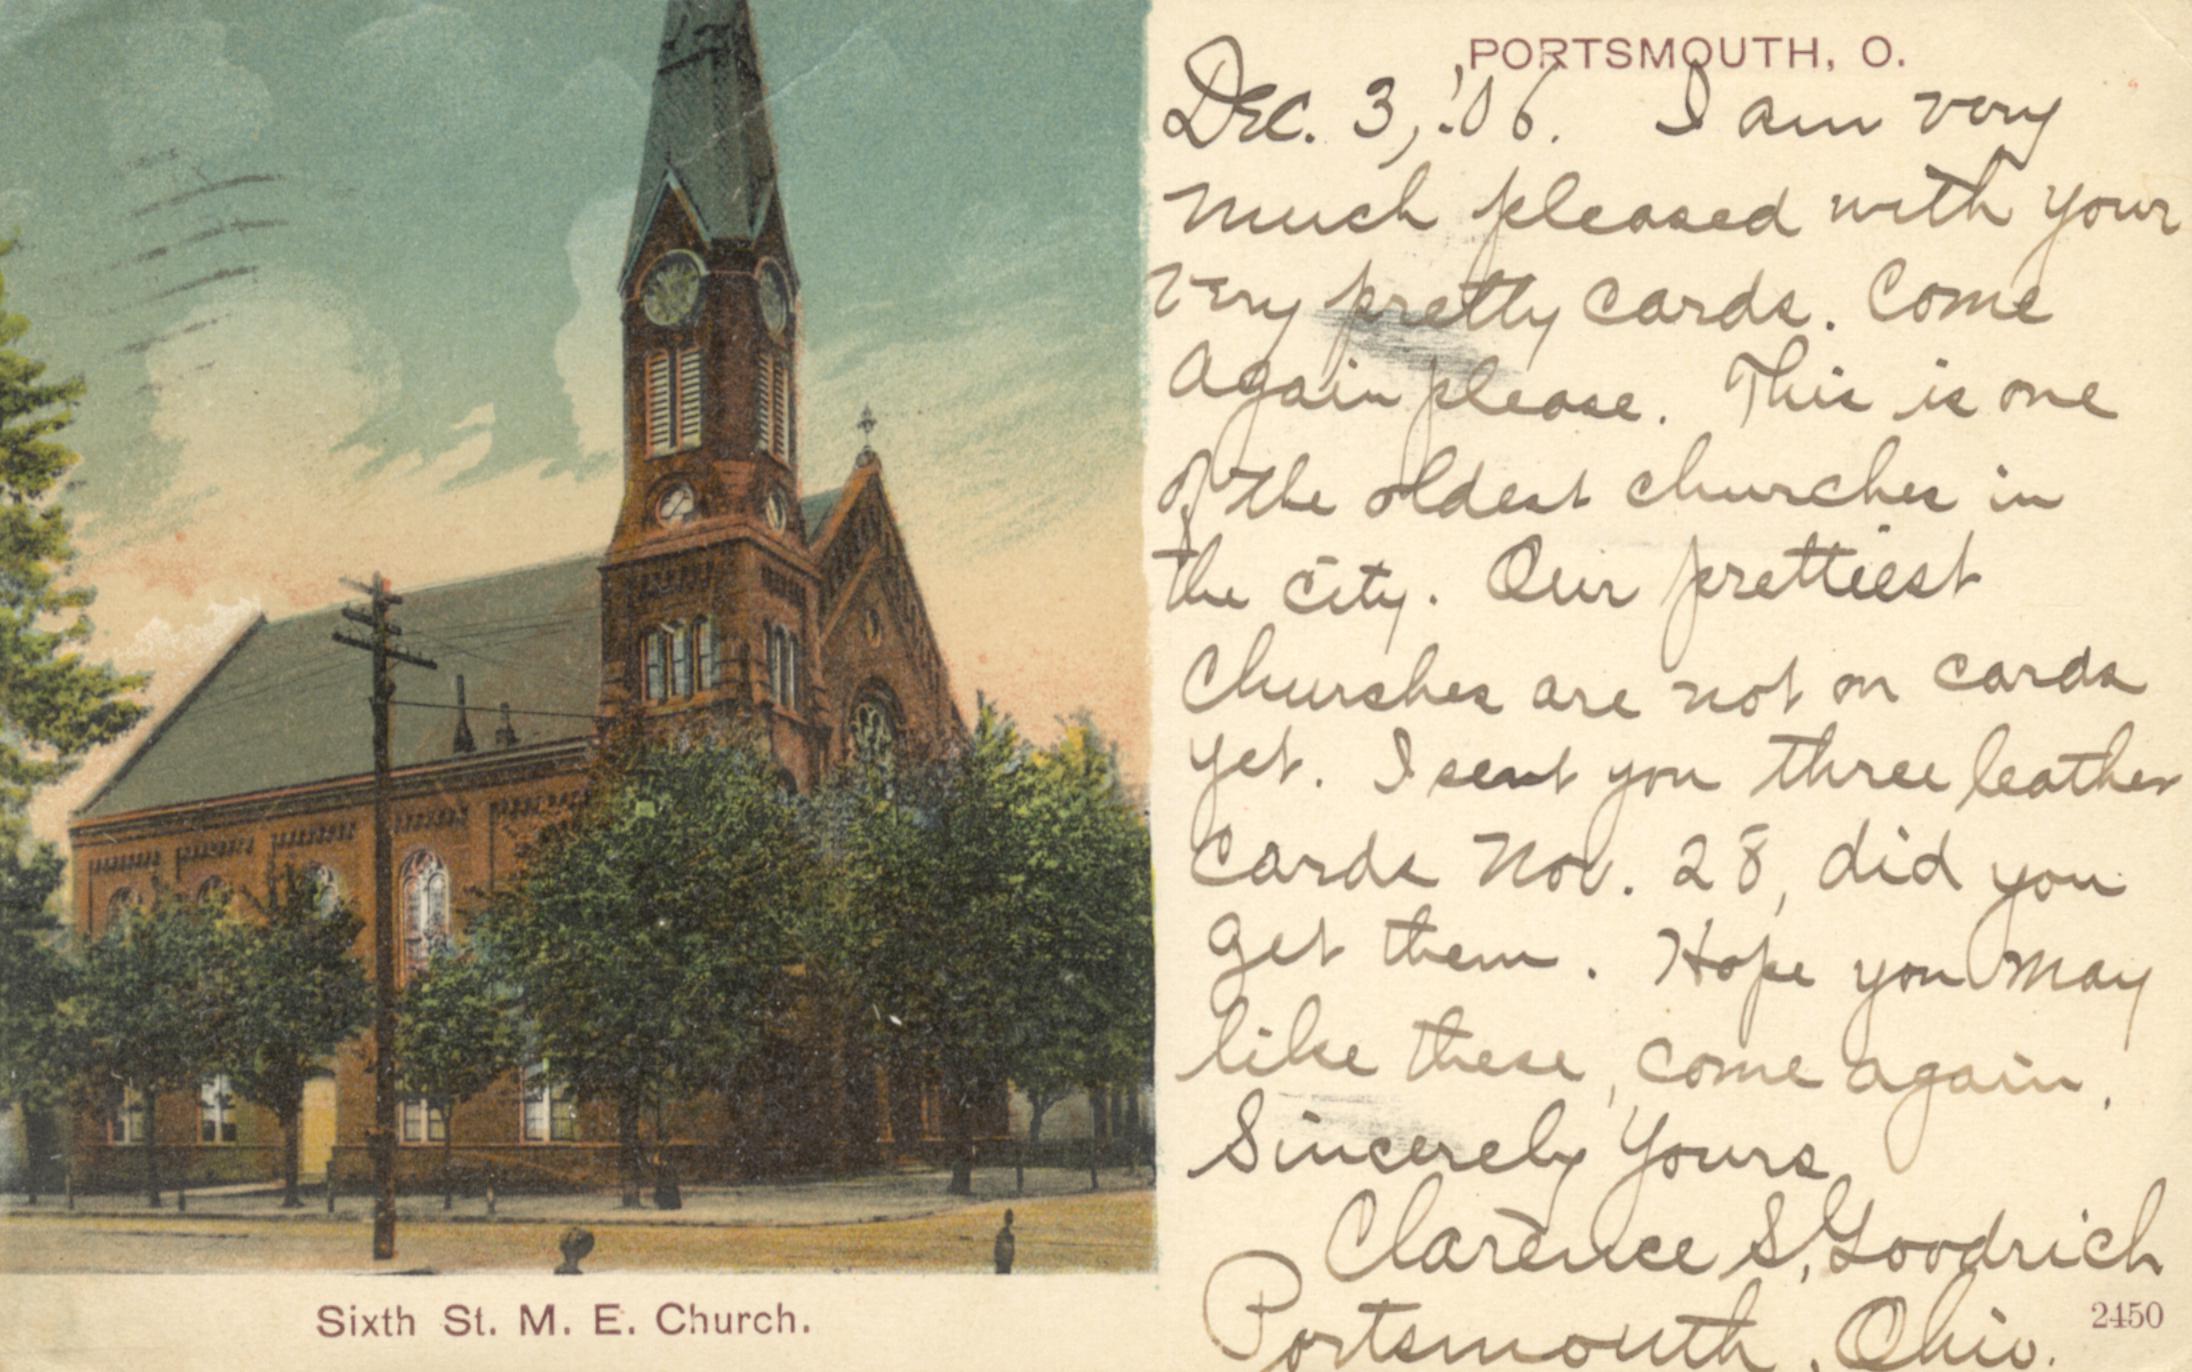 PORTSMOUTH, O.
Dec. 3, '06. I am very
much pleased with your
very pretty cards. Come
again please. This is one
of the oldest churches in
the city. Our prettiest
churches are not on cards
yet. I sent you three leather
cards Nov. 28, did you
get them. Hope you may
like these, come again,
Sincerely Yours
Clarence S. Goodrich
Portsmouth, Ohio.
2450
Sixth St. M. E. Church.